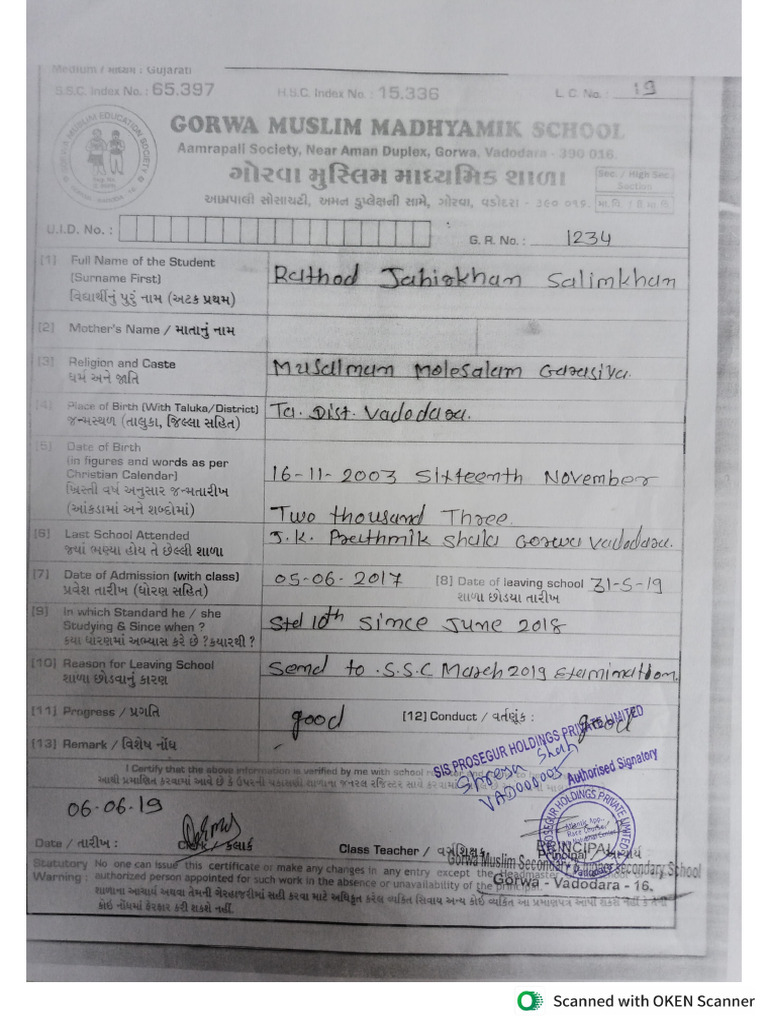 Medium / માધ્યમ : Gujarati
S.S.C. Index No. : 65.397 H.S.C. Index No. : 15.336 L.C. No. 19
GORWA MUSLIM EDUCATION SOCIETY
GORWA MUSLIM MADHYAMIK SCHOOL
Aamrapali Society, Near Aman Duplex, Gorwa, Vadodara - 390 016.
ગોરવા મુસ્લિમ માધ્યમિક શાળા
Sec. / High Sec. Section
આમ્રપાલી સોસાયટી, અમન ડુપ્લેક્ષની સામે, ગોરવા, વડોદરા - ૩૯૦ ૦૧૬.
U.I.D. No. : G. R. No. : 1234
[1] Full Name of the Student
(Surname First) Rathod Jahirkhan Salimkhan
વિદ્યાર્થીનું પુરૂં નામ (અટક પ્રથમ)
[2] Mother's Name / માતાનું નામ
[3] Religion and Caste Musalman Molesalam Garasiya.
ધર્મ અને જાતિ
[4] Place of Birth (With Taluka/District) Ta. Dist. Vadodara.
જન્મસ્થળ (તાલુકા, જિલ્લા સહિત)
[5] Date of Birth
(in figures and words as per
Christian Calendar) 16-11-2003 Sixteenth November
ખ્રિસ્તી વર્ષ અનુસાર જન્મતારીખ
(આંકડામાં અને શબ્દોમાં) Two thousand Three.
[6] Last School Attended J.K. Prathmik Shala Gorwa Vadodara.
જ્યાં ભણ્યા હોય તે છેલ્લી શાળા
[7] Date of Admission (with class) 05-06-2017 [8] Date of leaving school 31-5-19
પ્રવેશ તારીખ (ધોરણ સહિત) શાળા છોડયા તારીખ
[9] In which Standard he / she
Studying & Since when ? Std 10th Since June 2018
કયા ધોરણમાં અભ્યાસ કરે છે ? કયારથી ?
[10] Reason for Leaving School Send to S.S.C March 2019 Examination.
શાળા છોડવાનું કારણ
[11] Progress / પ્રગતિ good [12] Conduct / વર્તણુંક : good
[13] Remark / વિશેષ નોંધ -
SIS PROSEGUR HOLDINGS PRIVATE LIMITED
Shreya Shah
VAD000005
Authorised Signatory
I Certify that the above information is verified by me with school
06-06-19
Date / તારીખ : Clerk / કલાર્ક Class Teacher / વર્ગશિક્ષક : Principal / આચાર્ય
PRINCIPAL
Gorwa Muslim Secondary & Higher Secondary School
Gorwa - Vadodara - 16.
Statutory Warning : No one can issue this certificate or make any changes in any entry except the Headmaster
authorised person appointed for such work in the absence or unavailability of the principal
શાળાના આચાર્ય અથવા તેમની ગેરહાજરીમાં સહી કરવા માટે અધિકૃત કરેલ વ્યક્તિ સિવાય અન્ય કોઈ વ્યક્તિ આ પ્રમાણપત્ર આપી શકશે નહીં કે તેની
કોઈ નોંધમાં ફેરફાર કરી શકશે નહીં.
Scanned with OKEN Scanner